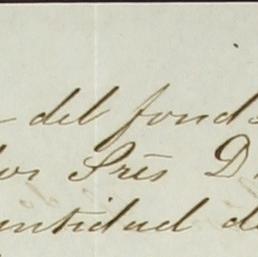 del fond
Sres D
ntidad d